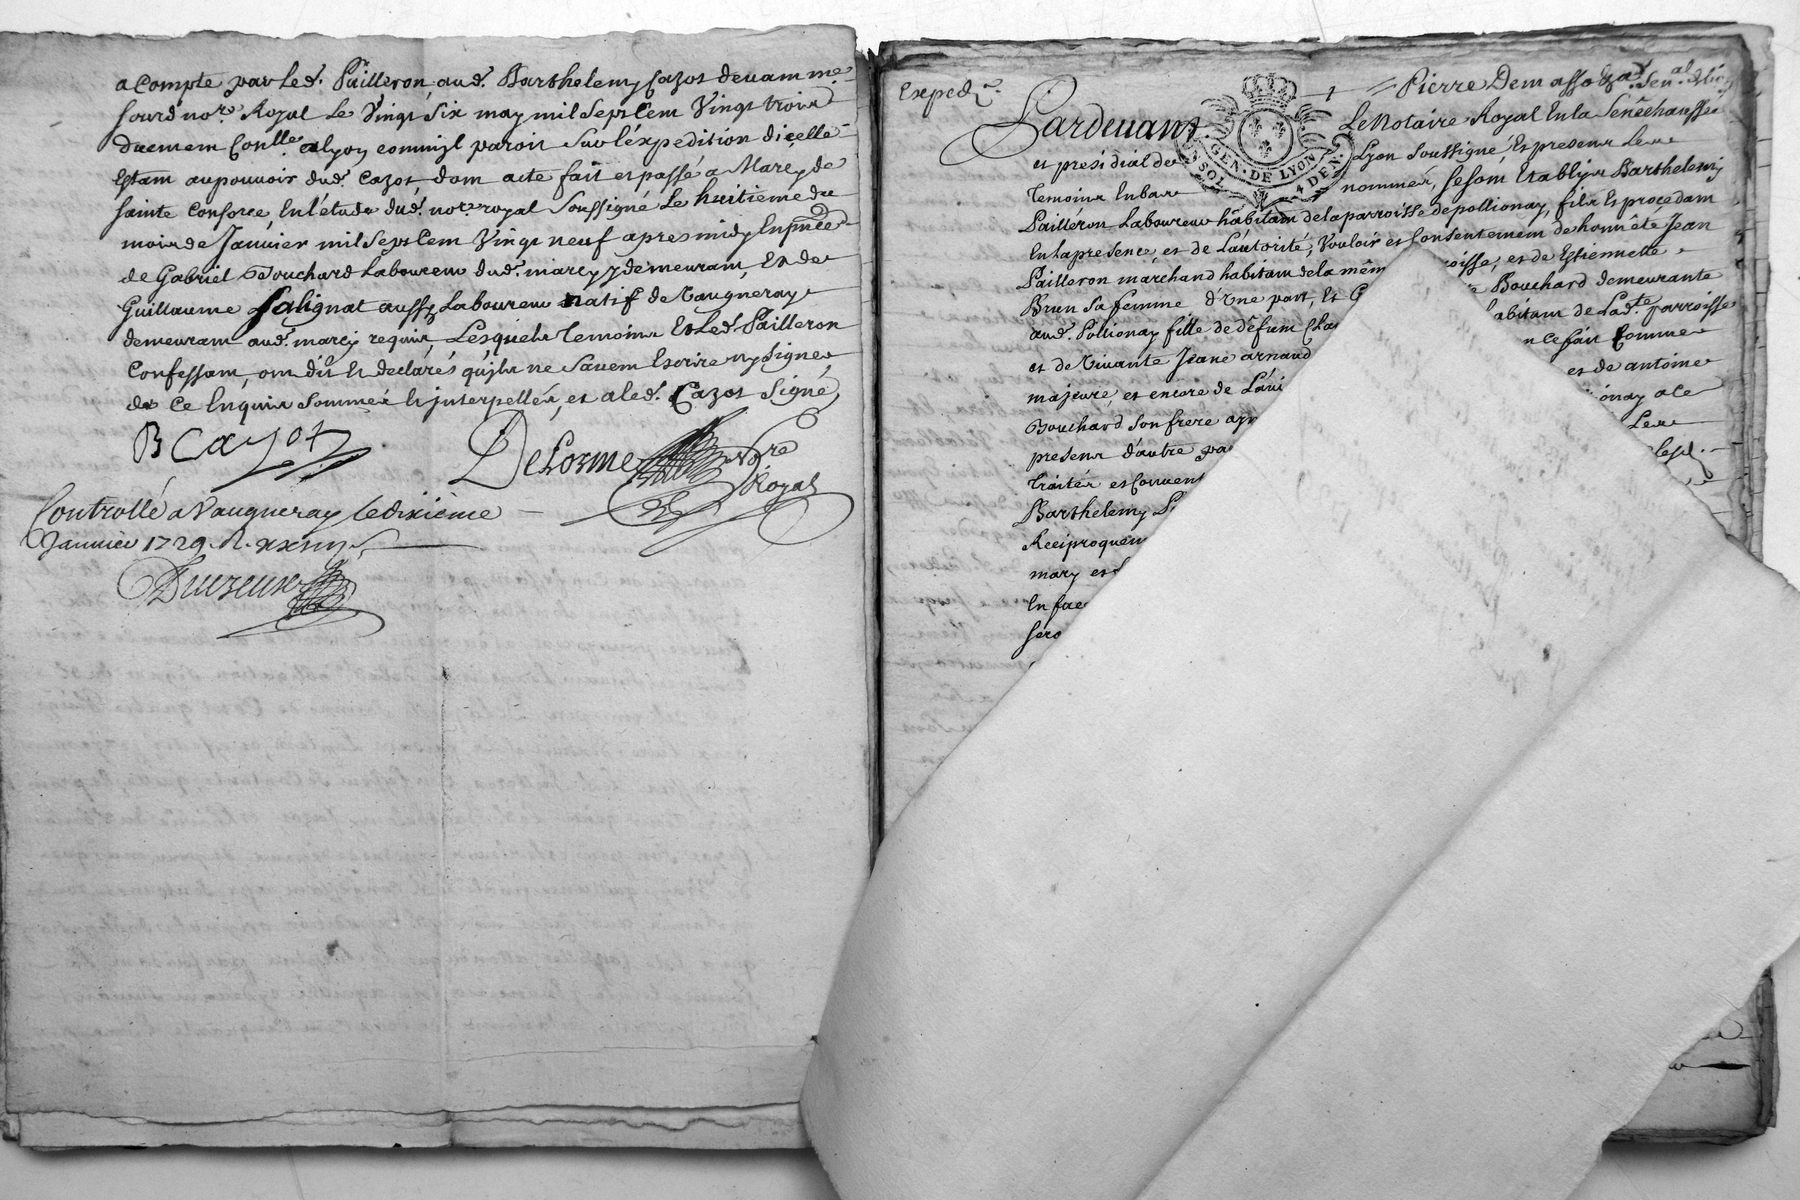 a Compte par led. Pailleron, aud. Barthelemy Cazot devant me.
Sourd nore. Royal le Vingt six may mil Sept Cent Vingt trois
duement Conlle. a lyon comm'jl paroit sur l'éxpedition d'jcelle
Estant au pouvoir dud. Cazot, dont acte fait et passé a Marcy de
Sainte Consorce, En l'étude dud. notre. royal Soussigné Le huitieme du
mois de Janvier mil Sept Cent Vingt neuf apres midy En pnce
de Gabriel Bouchard Laboureur dud. marcy y demeurant, Et de
Guillaume Salignat aussy Laboureur natif de Vaugneray
demeurant aud. marcy requis, Lesquels Temoins Et Led. Pailleron
Confessant, ont dit et declarés qu'jls ne Savent Escrire ny Signer
de Ce Enquis Sommés et jnterpellés, et a led. Cazot Signé
B Cazot
DeLorme Nore Royal
Controllé a Vaugneray le dixieme
Janvier 1729. R.
Expedié.
1
Pierre
Pardevant Le Notaire Royal En la Sénêchaussée
et présidial de Lyon Soussigné, Et presens Les
Temoins En bas nommés, Se Sont Etablys Barthelemy
GEN. DE LYON
Pailléron Laboureur habitant de la parroisse de pollionay, fils Et procedant
En la presence, et de L'autorité, Vouloir et Consentement de honnête Jean
Pailleron marchand habitant de la mêm oisse, et de Estiennette
Brun Sa femme d'Une part, Et Bouchard demeurante
aud. Pollionay fille de défunt habitant de Lad.te parroisse
et de Vivante Jeane arnaud n ce fait Comme
majeure, et encore de et de antoine
Bouchard Son frere onay a ce
presens d'autre Les
Traités et
Barthelemy
Reciproquem
mary et
En fac